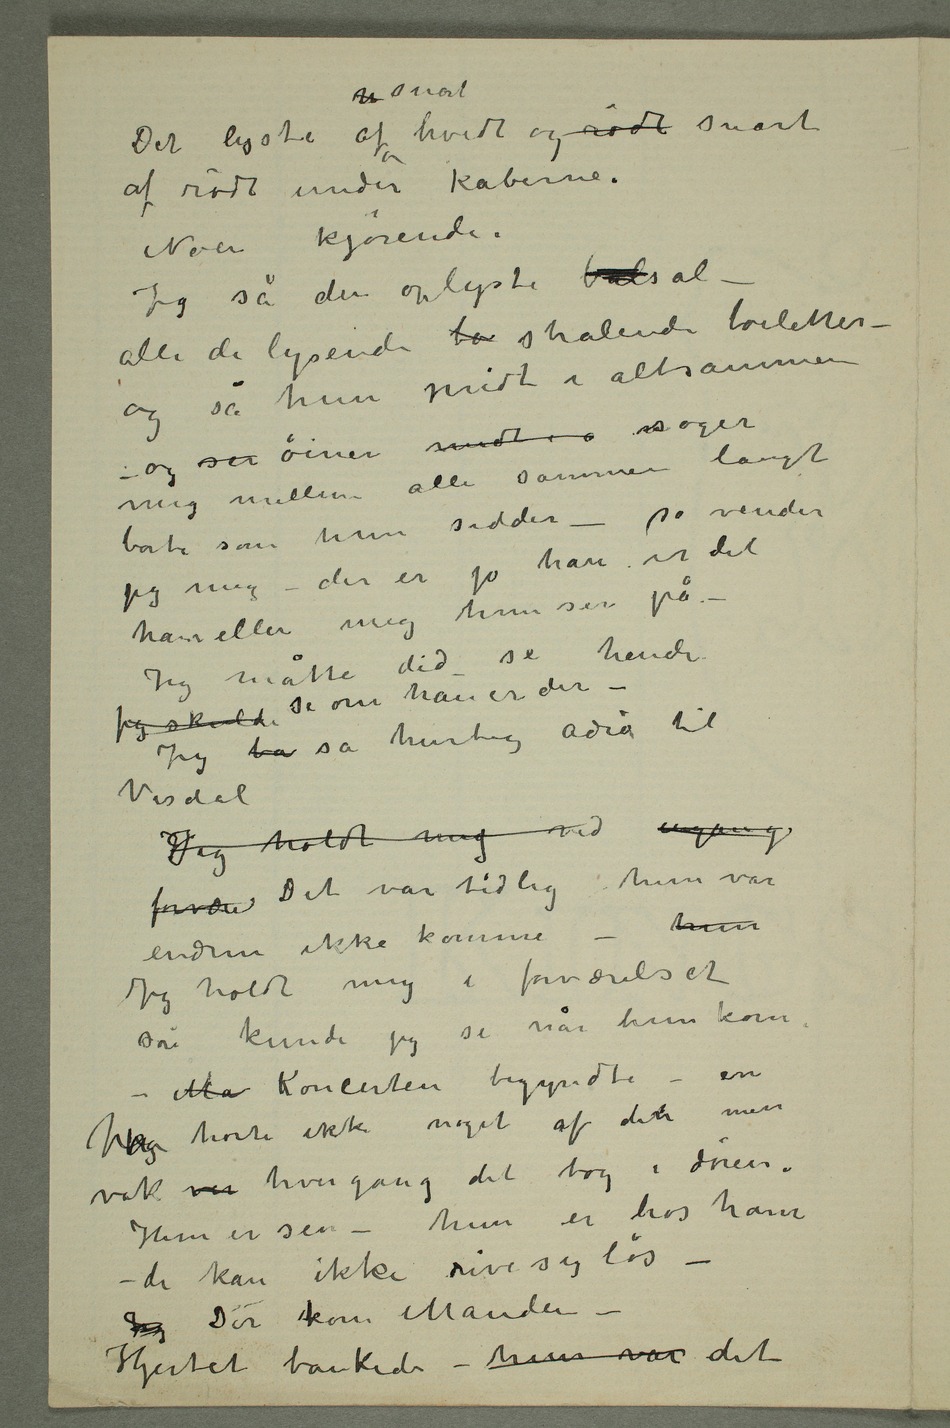 snart
Det lyste af hvidt og rödt snart
af rödt under kåberne.
Noen kjörende.
Jeg så den oplyste balsal –
alle de lysende to strålende toiletter –
og så hun midt i altsammen
– og ser öiner midt i a søger
mig mellem alle sammen langt
borte som hun sidder – så vender
jeg mig – der er jo han er det
han eller mig hun ser på –
Jeg måtte did se hende
jeg skulde se om han er der –
Jeg sa hurtig adiø til
Visdal
Jeg holdt mig ved ingang
forvære Det var tidlig hun var
endnu ikke komme – hun
Jeg holdt mig i forværelset
så kunde jeg se når hun kom.
– Ma Koncerten begyndte –
Jeg hørte ikke noget af den men
vak ver hvergang det tog i dören.
Hun er sen – hun er hos ham
– de kan ikke rive sig lös –
Jeg Dør kom Manden –
Hjertet bankede – hun var det